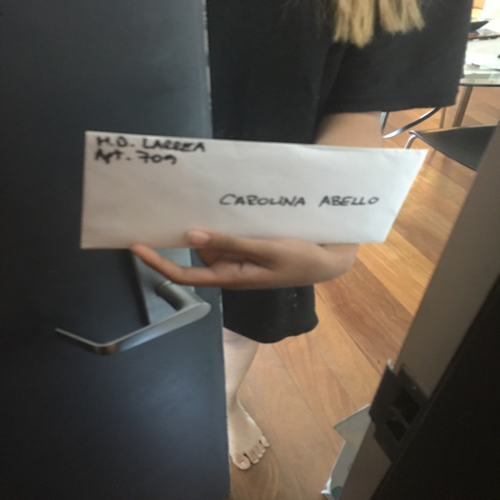 M.D. LARREA
Apt. 709
CAROLINA ABELLO